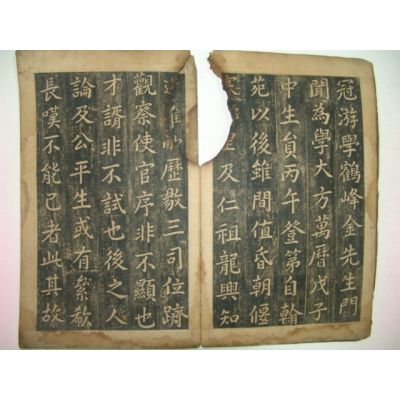 冠游學鶴峰金先生門
聞為學大方萬曆戊子
中生負丙午登第自翰
苑以後雖間值昏朝偃
蹇
及仁祖龍興知
遇雖
歷敭三司位躋
觀察使官序非不顯也
才諝非不試也後之人
論及公平生或有縈欷
長嘆不能已者此其故